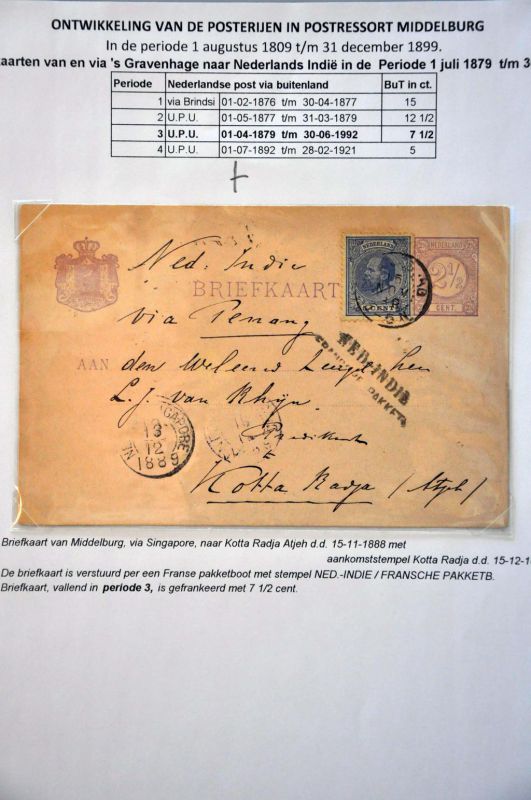 ONTWIKKELING VAN DE POSTERIJEN IN POSTRESSORT MIDDELBURG
In de periode 1 augustus 1809 t/m 31 december 1899.
kaarten van en via 's Gravenhage naar Nederlands Indië in de Periode 1 juli 1879 t/m 3
Periode Nederlandse post via buitenland BuT in ct.
1 via Brindsi 01-02-1876 t/m 30-04-1877 15
2 U.P.U. 01-05-1877 t/m 31-03-1879 12 1/2
3 U.P.U. 01-04-1879 t/m 30-06-1992 7 1/2
4 U.P.U. 01-07-1892 t/m 28-02-1921 5
NEDERLAND NEDERLAND
Ned. Indie
BRIEFKAART 2½
5 CENT CENT.
via Penang
NED-INDIE
FRANSCHE PAKKETB
AAN den
L. J. van Rhijn
SINGAPORE
13
12
1889
Predikant
Kotta Radja / Atjeh)
Briefkaart van Middelburg, via Singapore, naar Kotta Radja Atjeh d.d. 15-11-1888 met
aankomststempel Kotta Radja d.d. 15-12-1
De briefkaart is verstuurd per een Franse pakketboot met stempel NED.-INDIE / FRANSCHE PAKKETB.
Briefkaart, vallend in periode 3, is gefrankeerd met 7 1/2 cent.